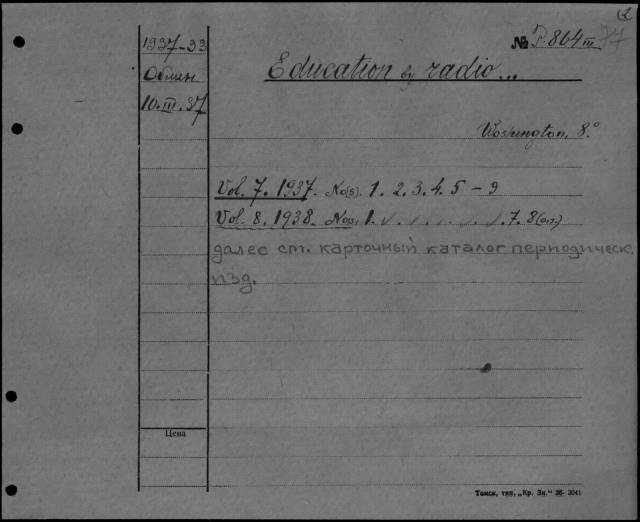 2
1937-33
№ P. 864 III 77
Обмен
Education by radio...
10.III.37
Washington, 8°
Vol. 7. 1937. No(s). 1. 2. 3. 4. 5 - 9
Vol. 8. 1938. No(s). 1. 7. 8
далее см. карточный каталог периодическ.
изд.
Цена
Томск, тип. „Кр. Зн." 36- 3041